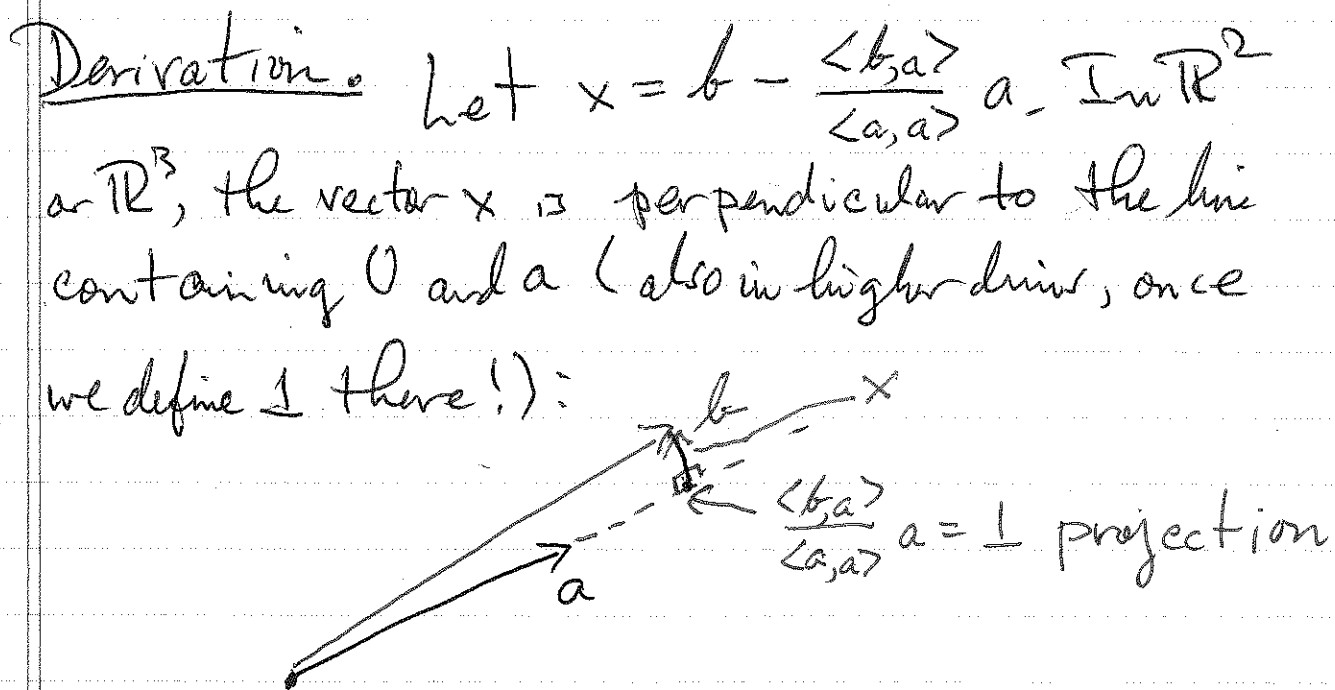 Derivation. Let x = b - <b,a>/<a,a> a. In ℝ²
or ℝ³, the vector x is perpendicular to the line
containing 0 and a (also in higher dims, once
we define ⊥ there!):
b x
<b,a>/<a,a> a = ⊥ projection
a